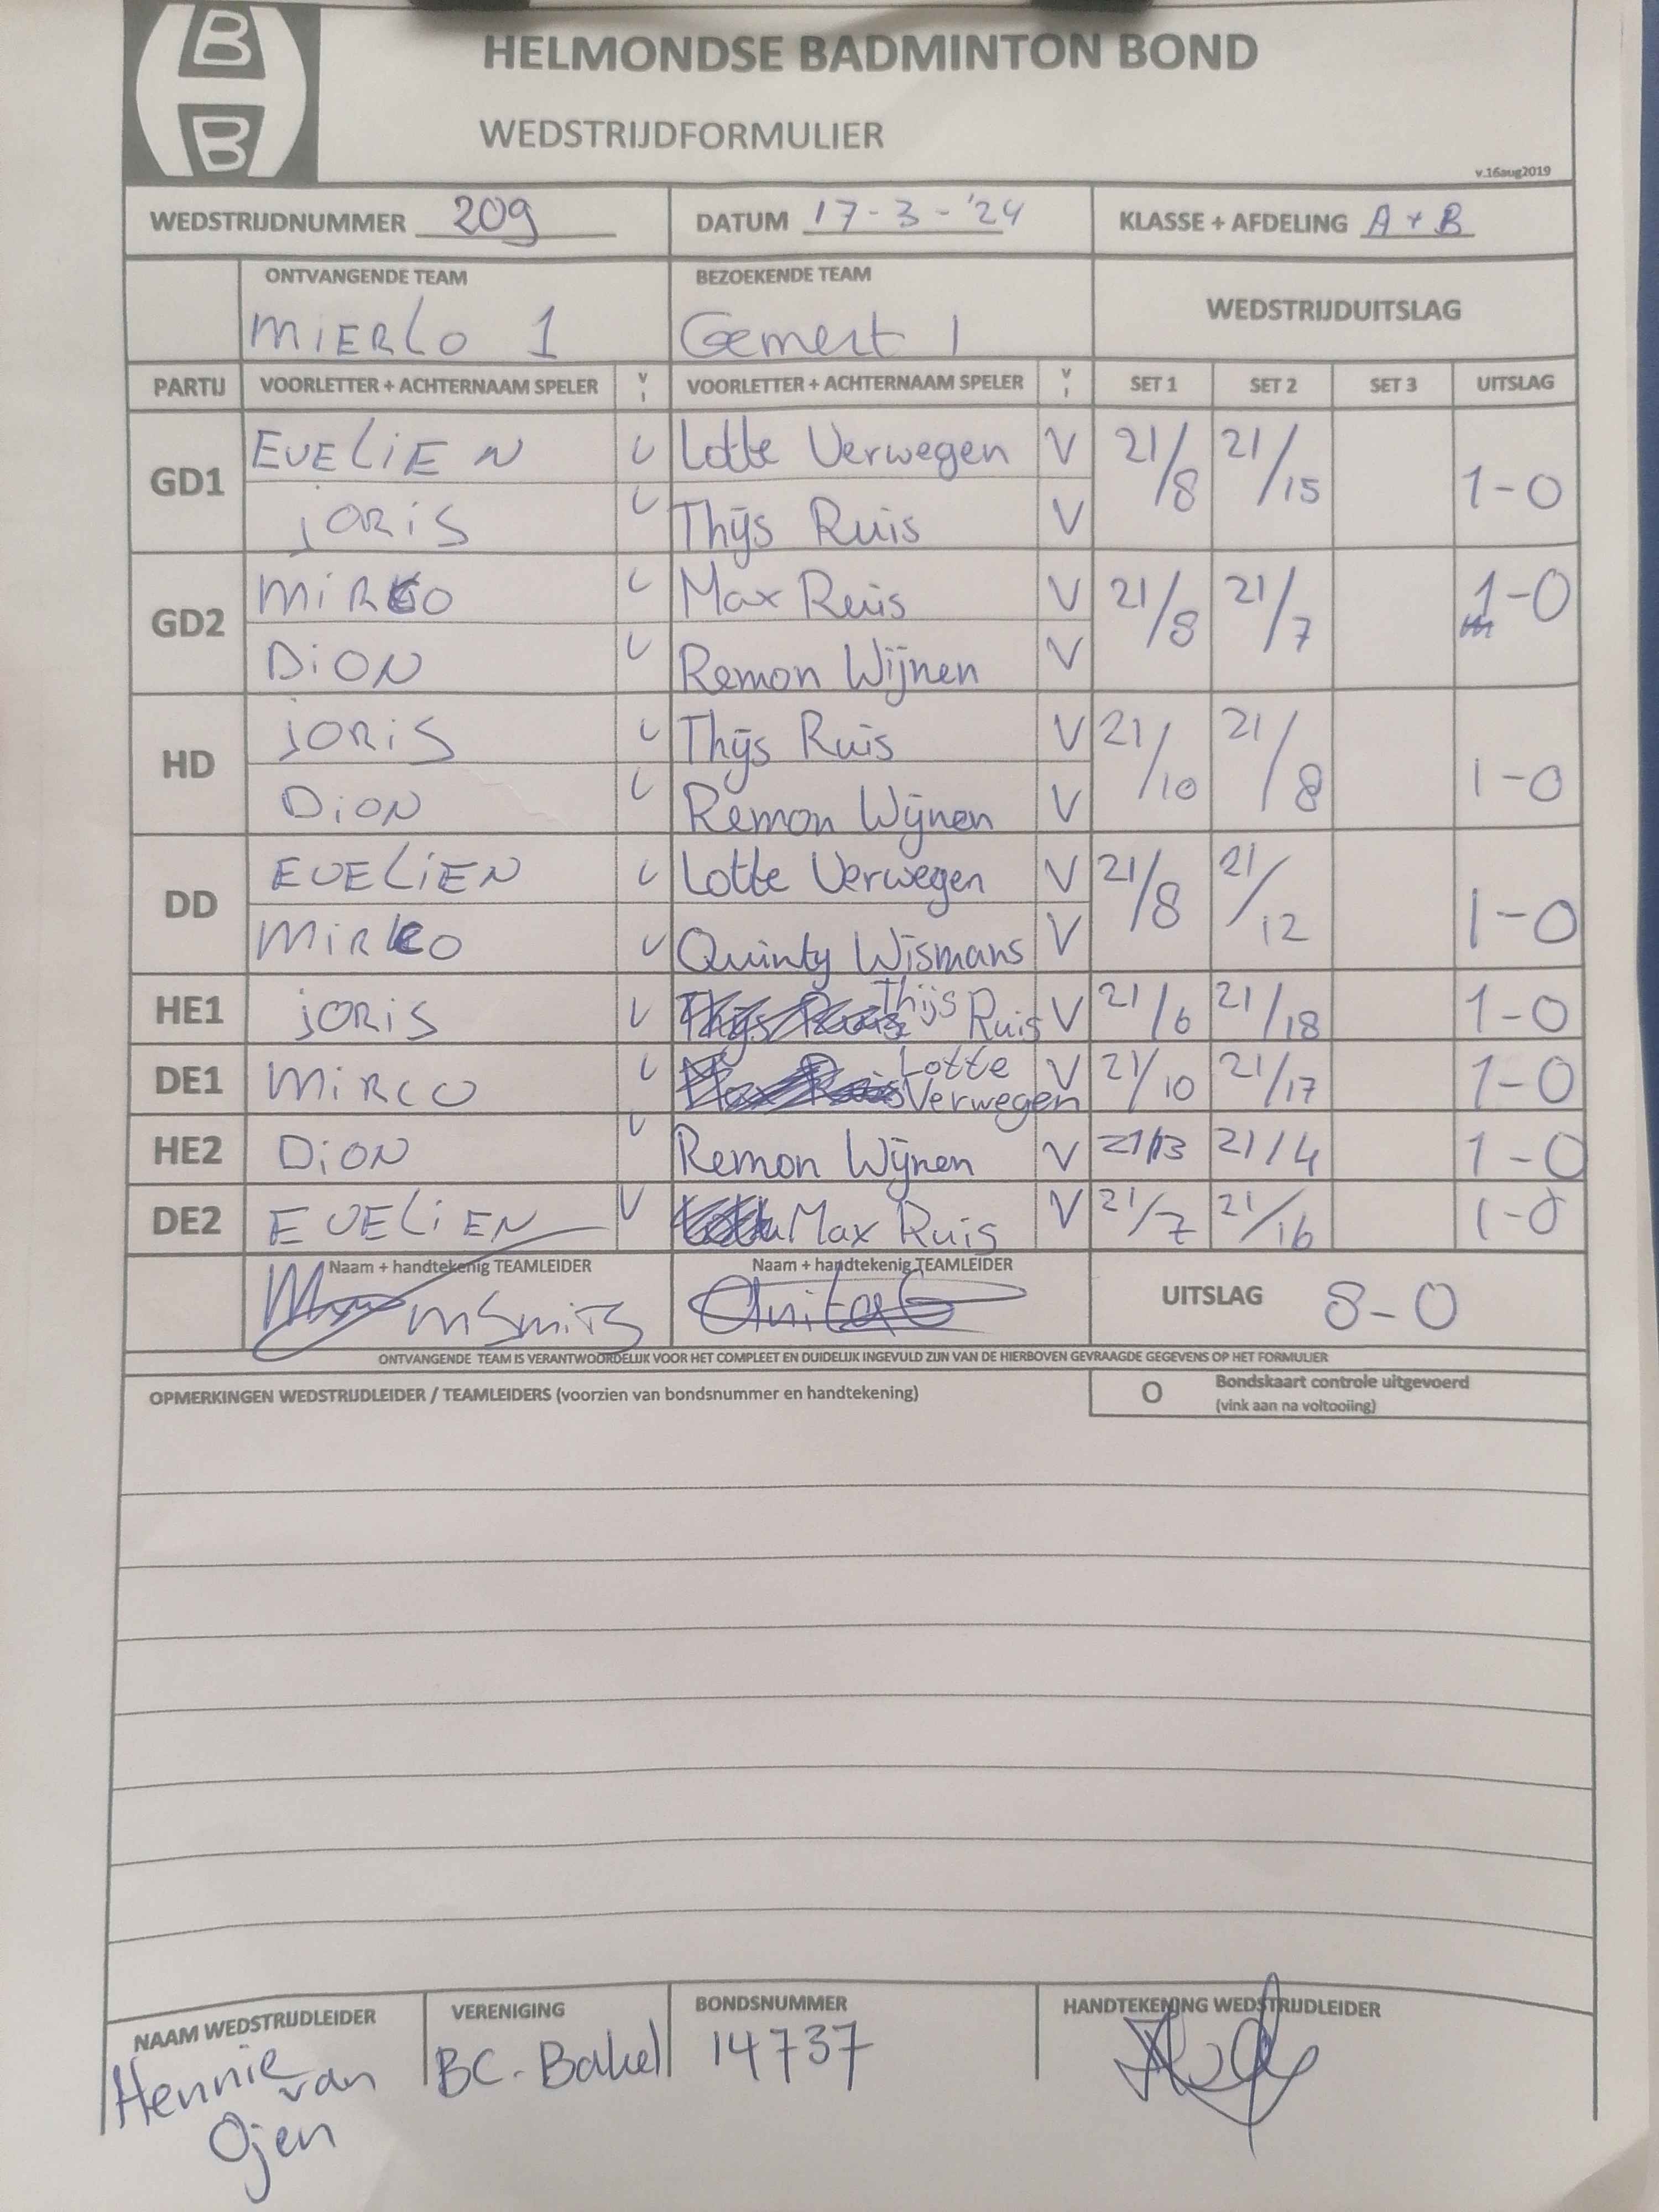 B
B
HELMONDSE BADMINTON BOND
WEDSTRIJDFORMULIER
v.16aug2019
WEDSTRIJDNUMMER 209 DATUM 17-3-'24 KLASSE + AFDELING A + B
ONTVANGENDE TEAM BEZOEKENDE TEAM WEDSTRIJDUITSLAG
MIERLO 1 Gemert 1
PARTIJ VOORLETTER + ACHTERNAAM SPELER V I VOORLETTER + ACHTERNAAM SPELER V I SET 1 SET 2 SET 3 UITSLAG
GD1 EVELIEN V Lotte Verwegen V 21/8 21/15 1-0
JORIS V Thijs Ruis V
GD2 MIRCO V Max Ruis V 21/8 21/7 1-0
DION V Remon Wijnen V
HD JORIS V Thijs Ruis V 21/10 21/8 1-0
DION V Remon Wijnen V
DD EVELIEN V Lotte Verwegen V 21/8 21/12 1-0
MIRCO V Quinty Wismans V
HE1 JORIS V Thijs Ruis V 21/6 21/18 1-0
DE1 MIRCO V Lotte Verwegen V 21/10 21/17 1-0
HE2 DION V Remon Wijnen V 21/13 21/4 1-0
DE2 EVELIEN V Max Ruis V 21/7 21/16 1-0
Naam + handtekenig TEAMLEIDER Naam + handtekenig TEAMLEIDER UITSLAG 8-0
MSmits Anita
ONTVANGENDE TEAM IS VERANTWOORDELIJK VOOR HET COMPLEET EN DUIDELIJK INGEVULD ZIJN VAN DE HIERBOVEN GEVRAAGDE GEGEVENS OP HET FORMULIER
OPMERKINGEN WEDSTRIJDLEIDER / TEAMLEIDERS (voorzien van bondsnummer en handtekening) O Bondskaart controle uitgevoerd
(vink aan na voltooiing)
NAAM WEDSTRIJDLEIDER VERENIGING BONDSNUMMER HANDTEKENING WEDSTRIJDLEIDER
Hennie van BC-Bakel 14737
Ojen